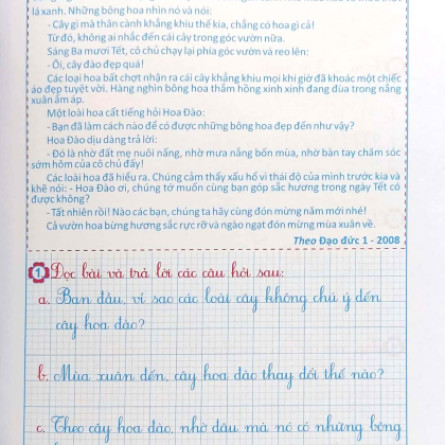 lá xanh. Những bông hoa nhìn nó và nói:
- Cây gì mà thân cành khẳng khiu thế kia, chẳng có hoa gì cả!
Từ đó, không ai nhắc đến cái cây trong góc vườn nữa.
Sáng Ba mươi Tết, cô chủ chạy lại phía góc vườn và reo lên:
- Ôi, cây đào đẹp quá!
Các loài hoa bất chợt nhận ra cái cây khẳng khiu mọi khi giờ đã khoác một chiếc
áo đẹp tuyệt vời. Hàng nghìn bông hoa thắm hồng xinh xinh đang đùa trong nắng
xuân ấm áp.
Một loài hoa cất tiếng hỏi Hoa Đào:
- Bạn đã làm cách nào để có được những bông hoa đẹp đến như vậy?
Hoa Đào dịu dàng trả lời:
- Đó là nhờ đất mẹ nuôi nấng, nhờ mưa nắng bốn mùa, nhờ bàn tay chăm sóc
sớm hôm của cô chủ đấy!
Các loài hoa đã hiểu ra. Chúng cảm thấy xấu hổ vì thái độ của mình trước kia và
khẽ nói: - Hoa Đào ơi, chúng tớ muốn cùng bạn góp sắc hương trong ngày Tết có
được không?
- Tất nhiên rồi! Nào các bạn, chúng ta hãy cùng đón mừng năm mới nhé!
Cả vườn hoa bừng hương sắc rực rỡ và ngào ngạt đón mừng mùa xuân về.
Theo Đạo đức 1 - 2008
1 Đọc bài và trả lời các câu hỏi sau:
a. Ban đầu, vì sao các loài cây không chú ý đến
cây hoa đào?
b. Mùa xuân đến, cây hoa đào thay đổi thế nào?
c. Theo cây hoa đào, nhờ đâu mà nó có những bông